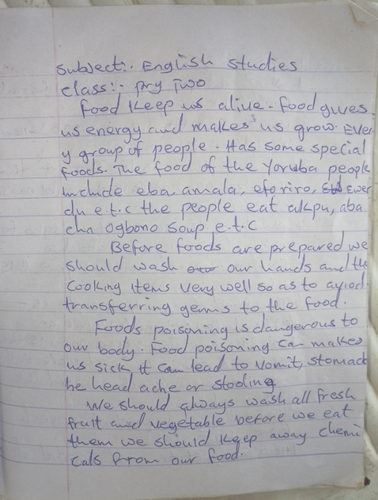 Subject:. English studies
class:. pry Two
Food Keep us alive. Food gives
us energy and makes us grow. Ever
y group of people. Has some special
foods. The food of the Yoruba people
include eba amala, efo riro, Ewe
du e.t.c the people eat akpu, aba
cha Ogbono soup e.t.c
Before foods are prepared we
should wash our hands and the
Cooking items very well so as to avoid
transferring germs to the food.
Foods poisoning is dangerous to
our body. Food poisoning can makes
us sick it can lead to vomit, stomac
he head ache or stooling
We should always wash all fresh
fruit and vegetable before we eat
them we should keep away chemi
cals from our food.